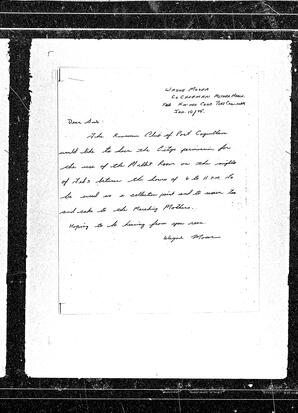 Wayne Moore
Co Chairman Mothers March
For Kinsmen Club Port Coquitlam
Jan. 16/75.
Dear Sirs:
The Kinsmen Club of Port Coquitlam
would like to have the Citys permission for
the use of the Mabbett Room on the nights
of Feb. between the hours of 6 to 11 PM to
be used as a collection point and to serve tea
and cake to the Marching Mothers.
Hoping to be hearing from you soon
Wayne Moore